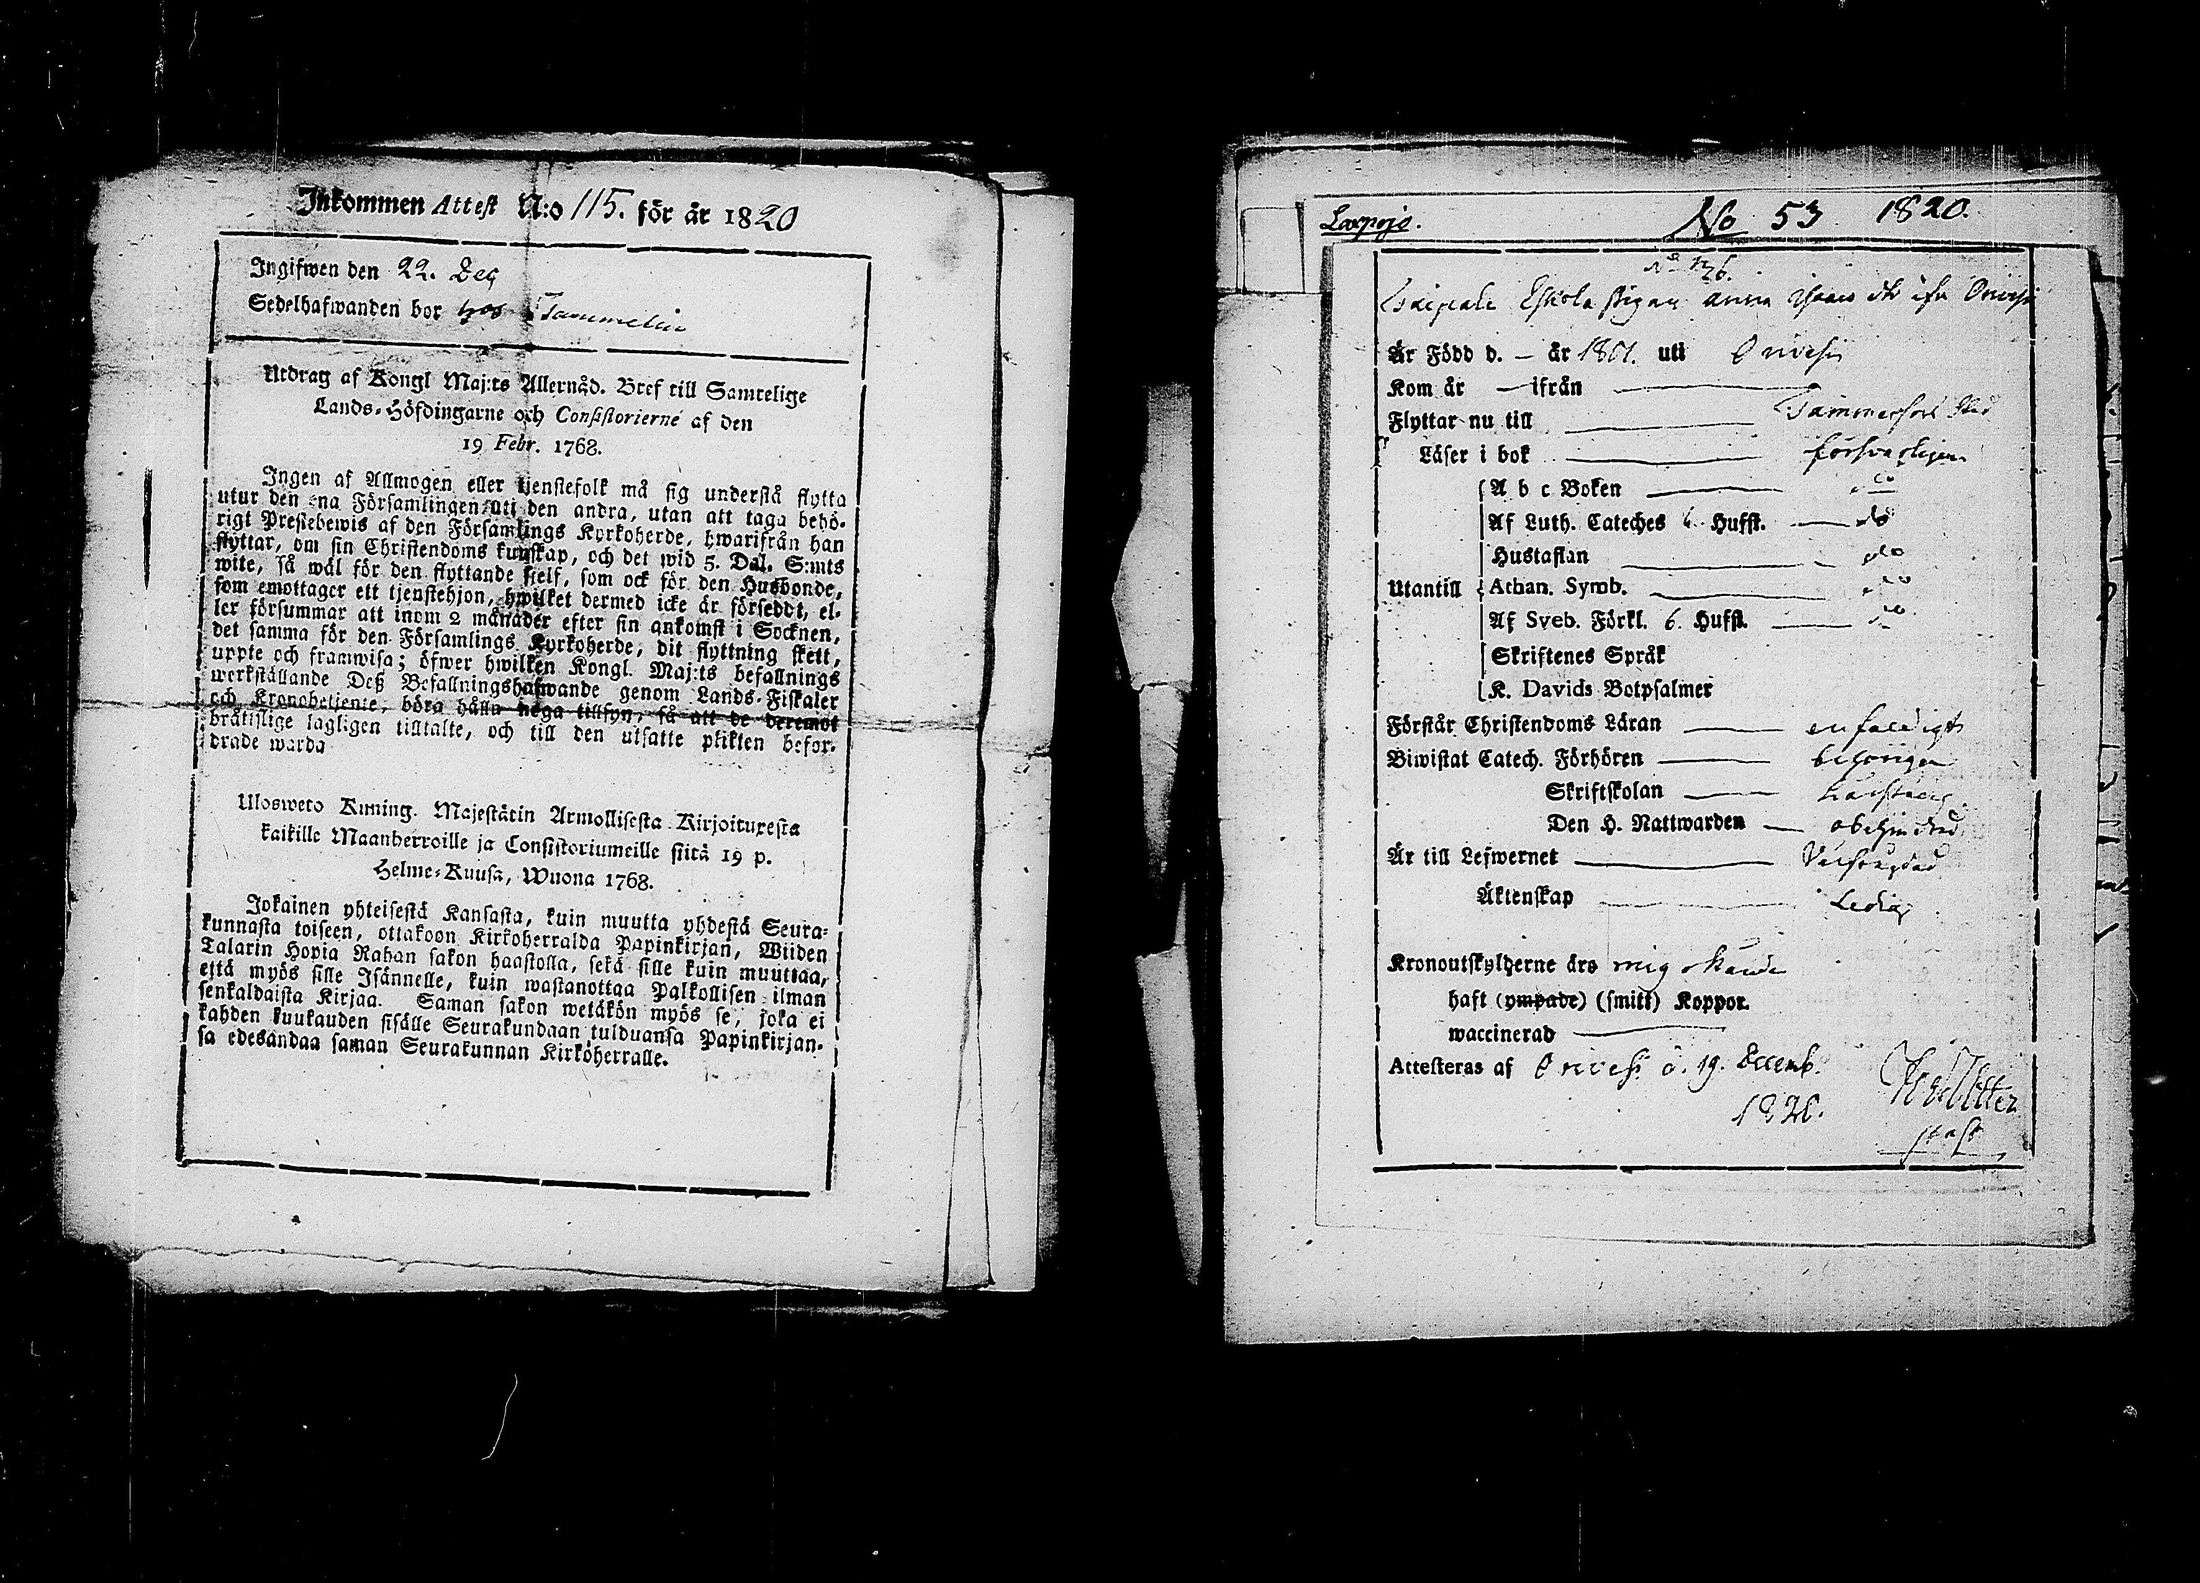 Inkommen Attest N:o 115. för år 1820
Ingifwen den 22. Dec
Sedelhafwanden bor hos Tammelin
Utdrag af Kongl Maj:ts Allernåd. Bref till Samtelige
Lands-Höfdingarne och Consistorierne af den
19 Febr. 1768.
Ingen af Allmogen eller tjenstefolk må sig understå flytta
utur den ena Församlingen uti den andra, utan att taga behö-
rigt Prestebewis af den Församlings Kyrkoherde, hwarifrån han
flyttar, om sin Christendoms kunskap, och det wid 5. Dal. S:mts
wite, så wäl för den flyttande sjelf, som ock för den Husbonde,
som emottager ett tjenstehjon, hwilket dermed icke är försedt, el-
ler försummar att inom 2 månader efter sin ankomst i Socknen,
det samma för den Församlings Kyrkoherde, dit flyttning skett,
uppte och framwisa; öfwer hwilken Kongl. Maj:ts befallnings
werkställande Deß Befallningshafwande genom Lands-Fiskaler
och Kronobetjente, böra hålla noga tillsyn, så att de deremot
bråtislige lagligen tilltalte, och till den utsatte plikten befor-
drade warda
Ulosweto Kuning. Majestätin Armollisesta Kirjoituxesta
kaikille Maanherroille ja Consistoriumeille siitä 19 p.
Helme-Kuusa, Wuona 1768.
Jokainen yhteisestä Kansasta, kuin muutta yhdestä Seura-
kunnasta toiseen, ottakoon Kirkoherralda Papinkirjan, Wiiden
Talarin Hopia Rahan sakon haastolla, sekä sille kuin muuttaa,
että myös sille Isännelle, kuin wastanottaa Palkollisen ilman
senkaldaista Kirjaa. Saman sakon wetäkön myös se, joka ei
kahden kuukauden sisälle Seurakundaan tulduansa Papinkirjan-
sa edesandaa saman Seurakunnan Kirkoherralle.
No 53 1820.
Eskola pigan Anna ifr Orivesi
Är Född d. – år 1801. uti Orivesi
Kom år — ifrån
Flyttar nu till Tammerfors Stad
Läser i bok försvarligen
A b c Boken do
Af Luth. Cateches 6. Hufst. do
Hustaflan do
Utantill Athan. Symb. do
Af Sveb. Förkl. 6. Hufst. do
Skriftenes Språk
K. Davids Botpsalmer
Förstår Christendoms Läran enfaldigt
Biwistat Catech. Förhören behörigen
Skriftskolan
Den H. Nattwarden obehindrad
Är till Lefwernet
Äktenskap Ledig
Kronoutskylderne äro mig okände
haft (ympade) (smitt) Koppor.
waccinerad
Attesteras af Orivesi d. 19. Decemb.
1820.